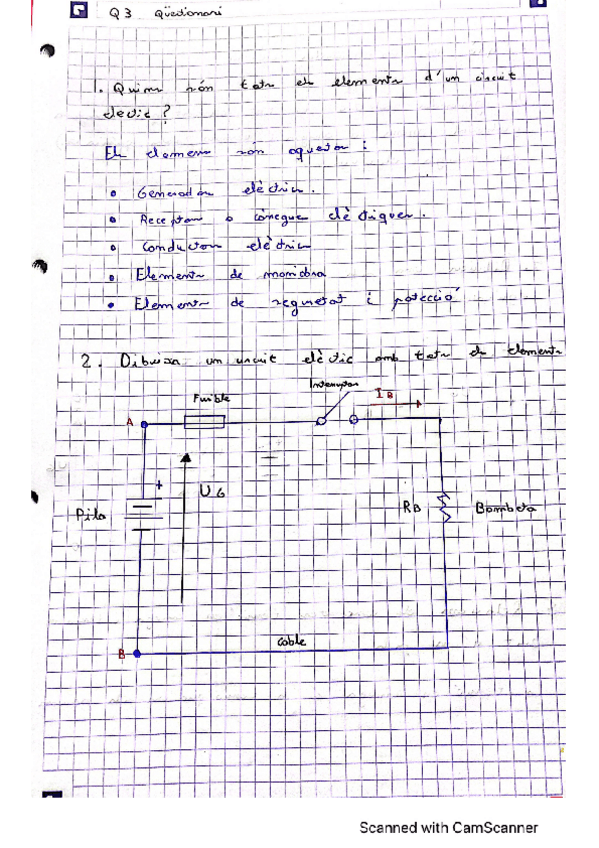 Q3 Qüestionari
1. Quins són tots els elements d'un circuit
elèctric?
Els elements són aquestos:
• Generador elèctric.
• Receptors o càrregues elèctriques.
• Conductors elèctrics
• Elements de maniobra
• Elements de regulació i protecció
2. Dibuixa un circuit elèctric amb tots els elements
Interruptor
Fusible
I B
A
+
U G
Pila
R B
Bombeta
Cable
B
Scanned with CamScanner